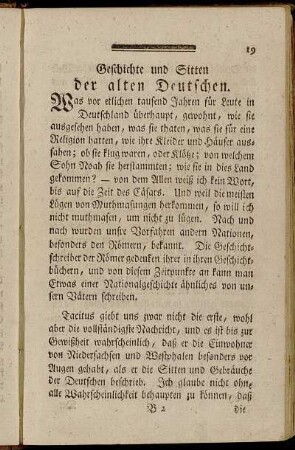 19
Geschichte und Sitten
der alten Deutschen.
Was vor etlichen tausend Jahren für Leute in
Deutschland überhaupt, gewohnt, wie sie
ausgesehen haben, was sie thaten, was sie für eine
Religion hatten, wie ihre Kleider und Häuser aus-
sahen; ob sie klug waren, oder Klötze; von welchem
Sohn Noah sie herstammten; wie sie in dies Land
gekommen? — von dem Allen weiß ich kein Wort,
bis auf die Zeit des Cäsars. Und weil die meisten
Lügen von Muthmasungen herkommen, so will ich
nicht muthmasen, um nicht zu lügen. Nach und
nach wurden unsre Vorfahren andern Nationen,
besonders den Römern, bekannt. Die Geschicht-
schreiber der Römer gedenken ihrer in ihren Geschicht-
büchern, und von diesem Zeitpunkte an kann man
Etwas einer Nationalgeschichte ähnliches von un-
sern Vätern schreiben.
Tacitus giebt uns zwar nicht die erste, wohl
aber die vollständigste Nachricht, und es ist bis zur
Gewißheit wahrscheinlich, daß er die Einwohner
von Niedersachsen und Westphalen besonders vor
Augen gehabt, als er die Sitten und Gebräuche
der Deutschen beschrieb. Ich glaube nicht ohn-
alle Wahrscheinlichkeit behaupten zu können, daß
B 2
die